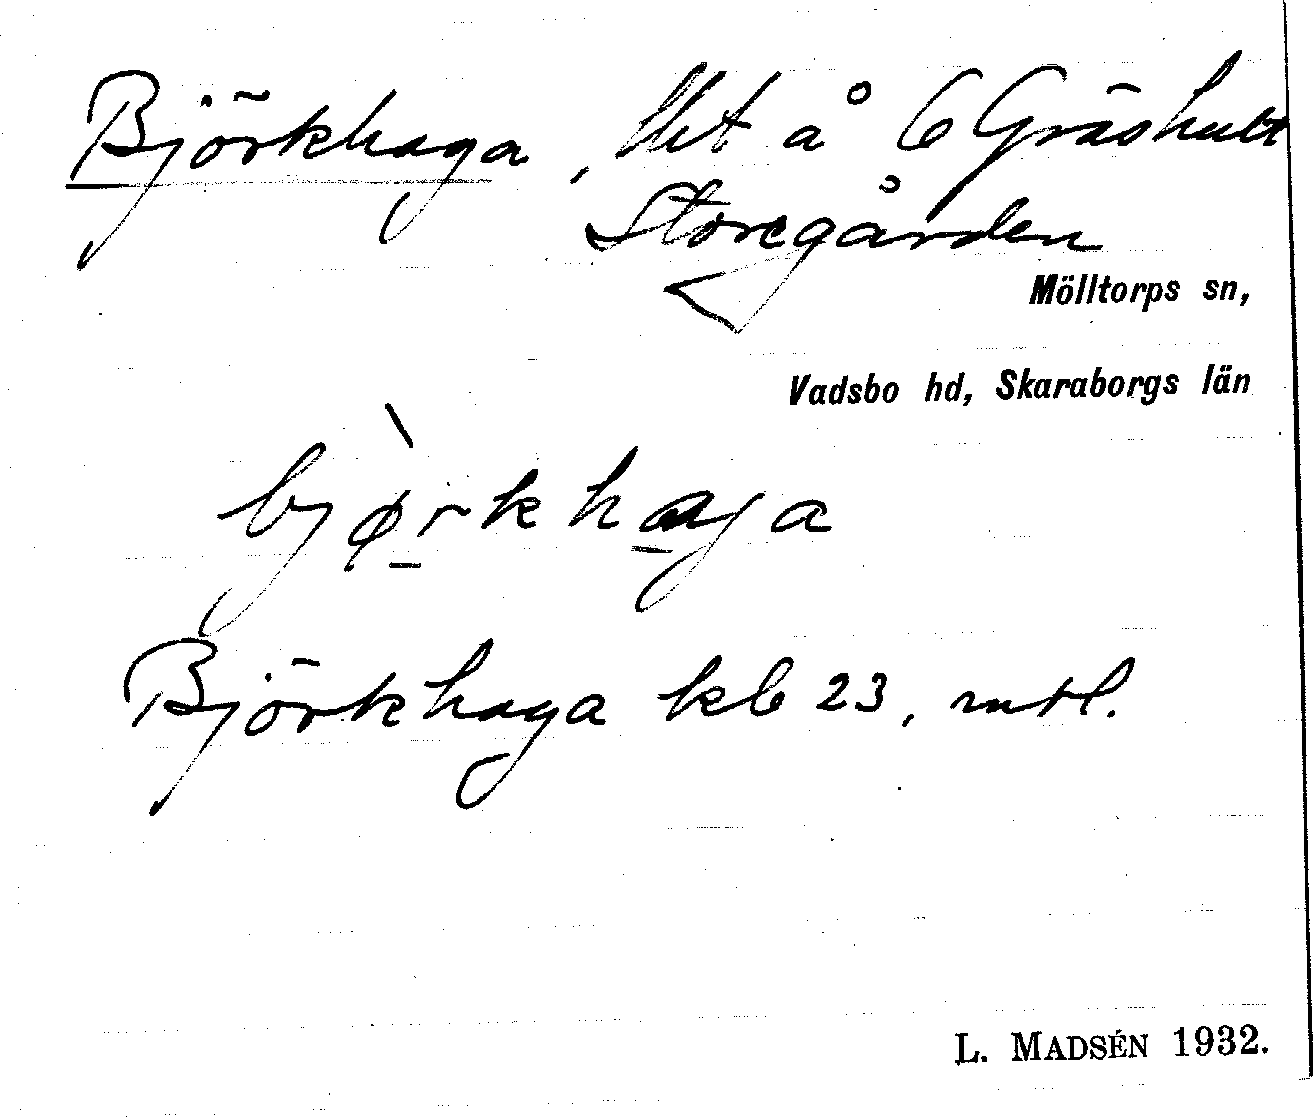 Björkhaga, lht å 6 Gräshult
Storegården
Mölltorps sn,
Vadsbo hd, Skaraborgs län
bjø̀rkhaga
Björkhaga kb 23, mtl.
L. MADSÉN 1932.